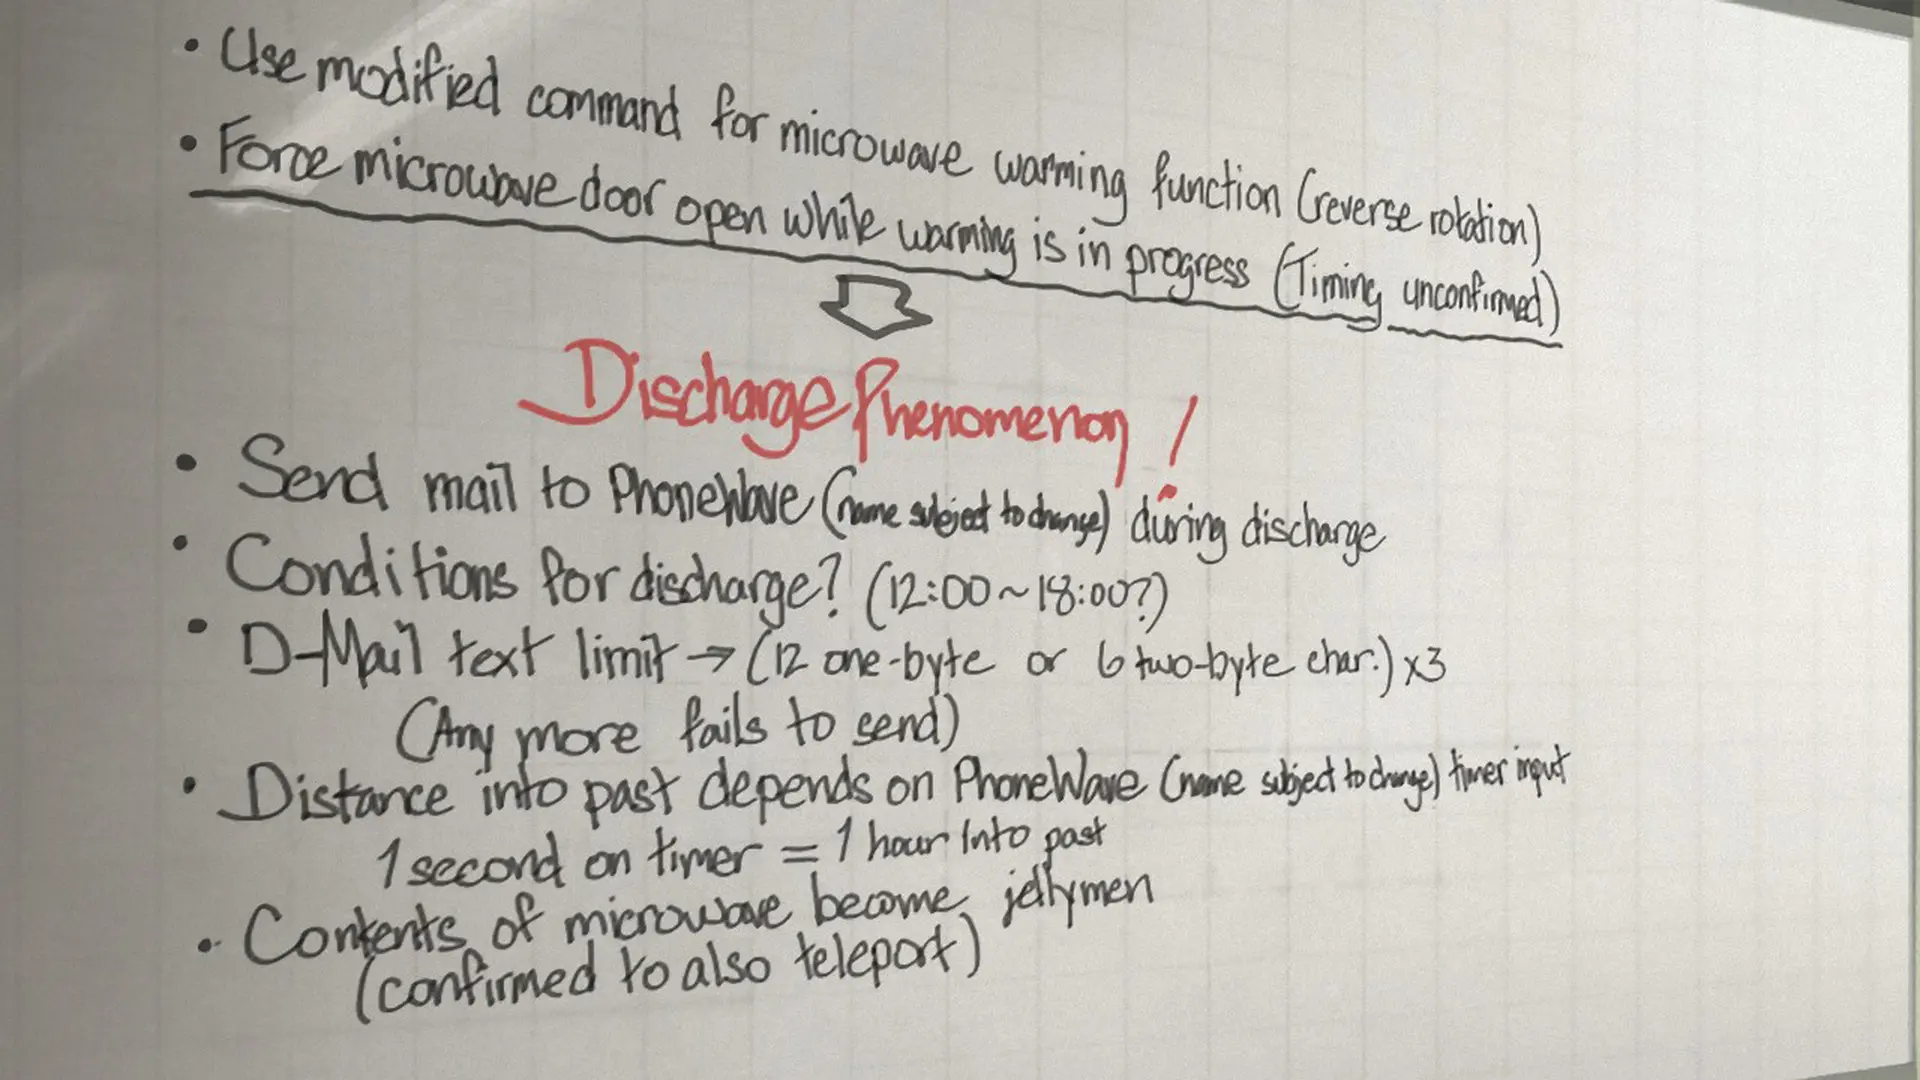 • Use modified command for microwave warming function (reverse rotation)
• Force microwave door open while warming is in progress (Timing unconfirmed)
Discharge Phenomenon!
• Send mail to PhoneWave (name subject to change) during discharge
• Conditions for discharge? (12:00~18:00?)
• D-Mail text limit → (12 one-byte or 6 two-byte char.) x3
(Any more fails to send)
• Distance into past depends on PhoneWave (name subject to change) timer input
1 second on timer = 1 hour into past
• Contents of microwave become jellymen
(confirmed to also teleport)